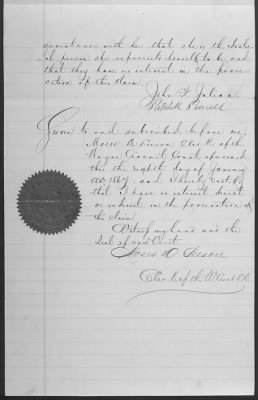 quaintance with her that she is the identi-
cal person she represents herself to be and
that they have no interest in the prose-
cution of this claim
John F Julian
Mitchell
Sworn to and subscribed before me
Moses D Leeson Clerk of the
Wayne Circuit Court aforesaid
this the eighth day of January
AD 1867, and I hereby certify
that I have no interest direct
or indirect in the prosecution of
this claim
Witness my hand and the
Seal of said Court
Moses D Leeson
Clerk of the W Cir Ct